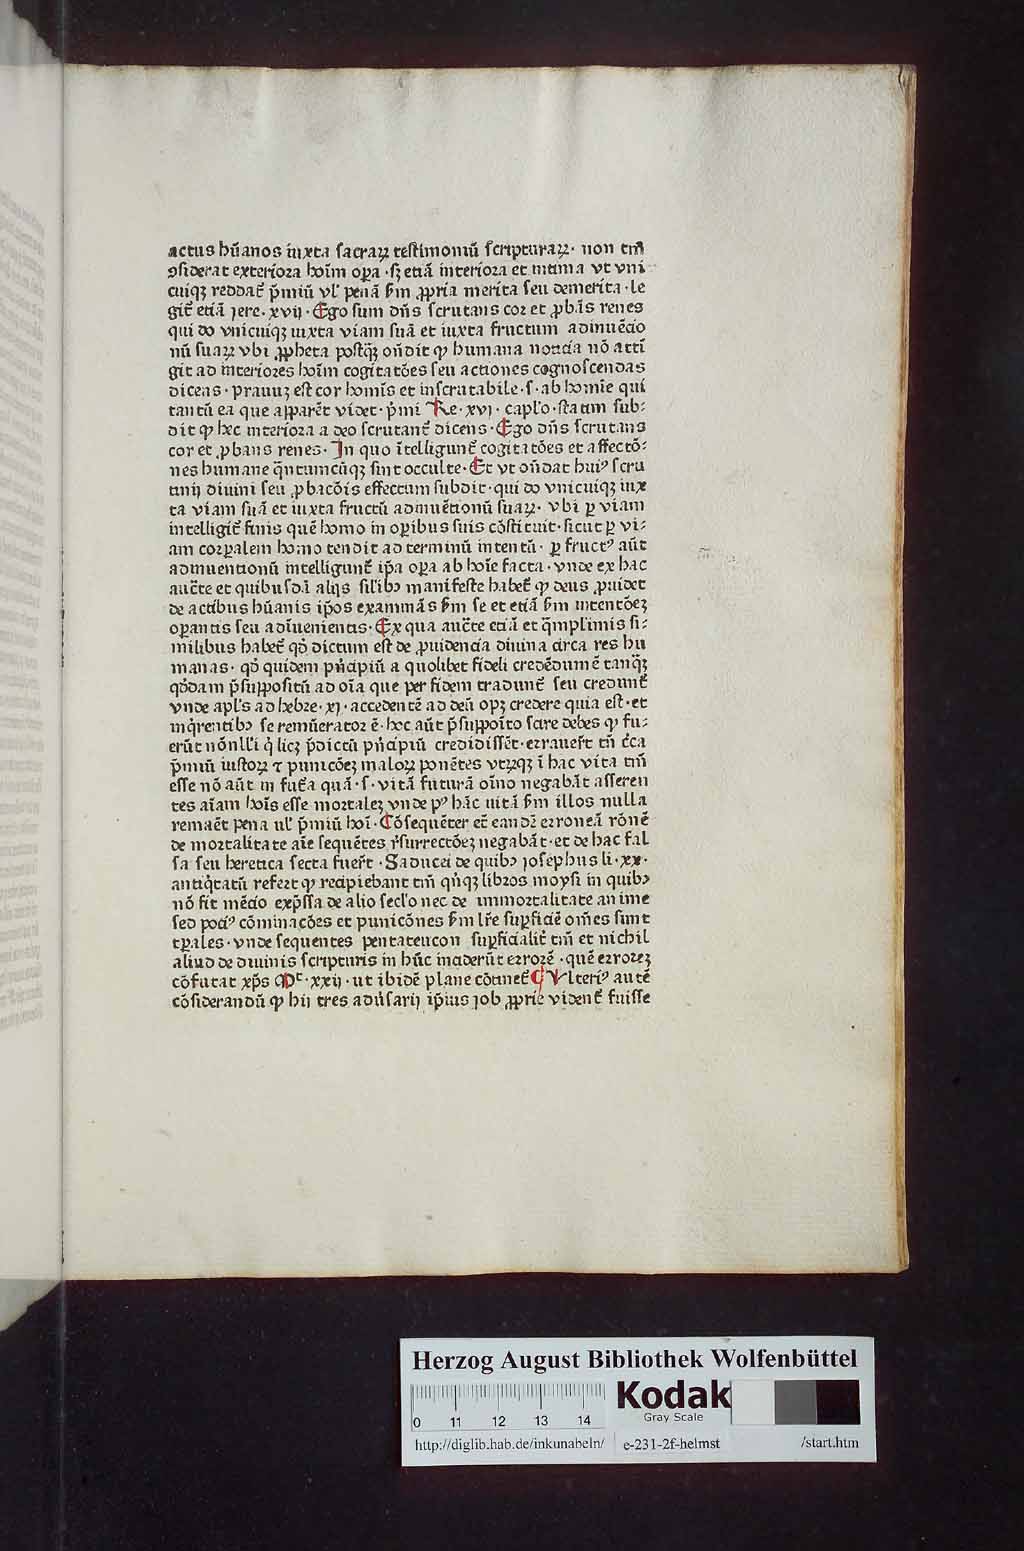 actus hūanos iuxta sacraꝝ testimoniū scripturaꝝ· non tm̄
ꝯsiderat exteriora hoīm oꝑa ·sꝫ etiā interiora et intima vt vni
cuiqꝫ reddat̄ p̄miū vl' penā ẜm ꝓpria merita seu demerita·le
git̄ etiā jere·xvij·Ego sum dn̄s scrutans cor et ꝓbās renes
qui do vnicuiqꝫ iuxta viam suā et iuxta fructum adinuēcio
nū suaꝝ vbi ꝓpheta postq̄ꝫ on̄dit ꝙ humana noticia nō attī
git ad interiores hoīm cogitatōes seu actiones cognoscendas
dicens·prauuꝫ est cor homīs et inscrutabile·s·ab homīe qui
tantū ea que apparēt videt·p̄mi Re·xvj·capl'o·statim sub-
dit ꝙ hec interiora a deo scrutant̄ dicens·Ego dn̄s scrutans
cor et ꝓbans renes·In quo ītelligunt̄ cogitatōes et affectō-
nes humane q̄ntumcūqꝫ sint occulte·Et vt on̄dat huiꝰ scru
tinij diuini seu ꝓbacōis effectum subdit·qui do vnicuiqꝫ iux
ta viam suā et iuxta fructū adinuētionū suaꝝ· vbi ꝑ viam
intelligit̄ finis quē homo in oꝑibus suis cōstituit·sicut ꝑ vi-
am corꝑalem homo tendit ad terminū intentū· ꝑ fructꝰ aūt
adinuentionū intelligunt̄ ip̄a oꝑa ab hoīe facta·vnde ex hac
auct̄e et quibusdā alijs sil'ibꝫ manifeste habet̄ ꝙ deus ꝓuidet
de actibus hūanis ip̄os examinās ẜm se et etiā ẜm intentōeꝫ
oꝑantis seu adīuenientis·Ex qua auct̄e etiā et q̄mpl'imis si-
milibus habet̄ qd̄ dictum est de ꝓuidencia diuina circa res hu
manas· qd̄ quidem pn̄cipiū a quolibet fideli credēdum ē tanq̄ꝫ
qd̄dam p̄suppositū ad oīa que per fidem tradunt̄ seu credunt̄
vnde apl's ad hebre·xj·accedentē ad deū opꝫ credere quia est·et
inq̄rentibꝫ se remūerator ē·hec aūt p̄suppoīto scire debes ꝙ fu-
erūt nōnll'i q̇ licꝫ p̄dictū pn̄cipiū credidissēt·errauer̄t tn̄ c̄ca
p̄miū iustoꝝ ⁊ punicōeꝫ maloꝝ ponētes vtꝝqꝫ ī hac vita tm̄
esse nō aūt in fut̄a quā·s·vitā futurā oīno negabāt asseren
tes aīam hoīs esse mortaleꝫ vnde pꝰ hāc uitā ẜm illos nulla
remaēt pena ul' p̄miū hoī·Cōsequēter et̄ eandē erroneā rōnē
de mortalitate aīe sequētes r̄surrectōeꝫ negabāt·et de hac fal
sa seu heretica secta fuer̄t ·Saducei de quibꝫ josephus li·xx·
antiq̇tatū refert ꝙ recipiebant tm̄ qn̄qꝫ libros moysi in quibꝫ
nō fit mēcio exp̄ssa de alio secl'o nec de immortalitate anime
sed pociꝰ cōminacōes et punicōnes ẜm lr̄e suꝑficiē om̄es sunt
tꝑales·vnde sequentes pentateucon suꝑficialit̄ tm̄ et nichil
aliud de diuinis scripturis in hūc inciderūt errorē ·quē erroreꝫ
cōfutat xp̄s Mᵗ·xxij·ut ibidē plane cōtinet̄ ¶ Vlteriꝰ autē
cōsiderandū ꝙ hij tres adūsarij ip̄ius job ꝓprie vident̄ fuisse
Herzog August Bibliothek Wolfenbüttel
Kodak
Gray Scale
0 11 12 13 14
http://diglib.hab.de/inkunabeln/ e-231-2f-helmst /start.htm